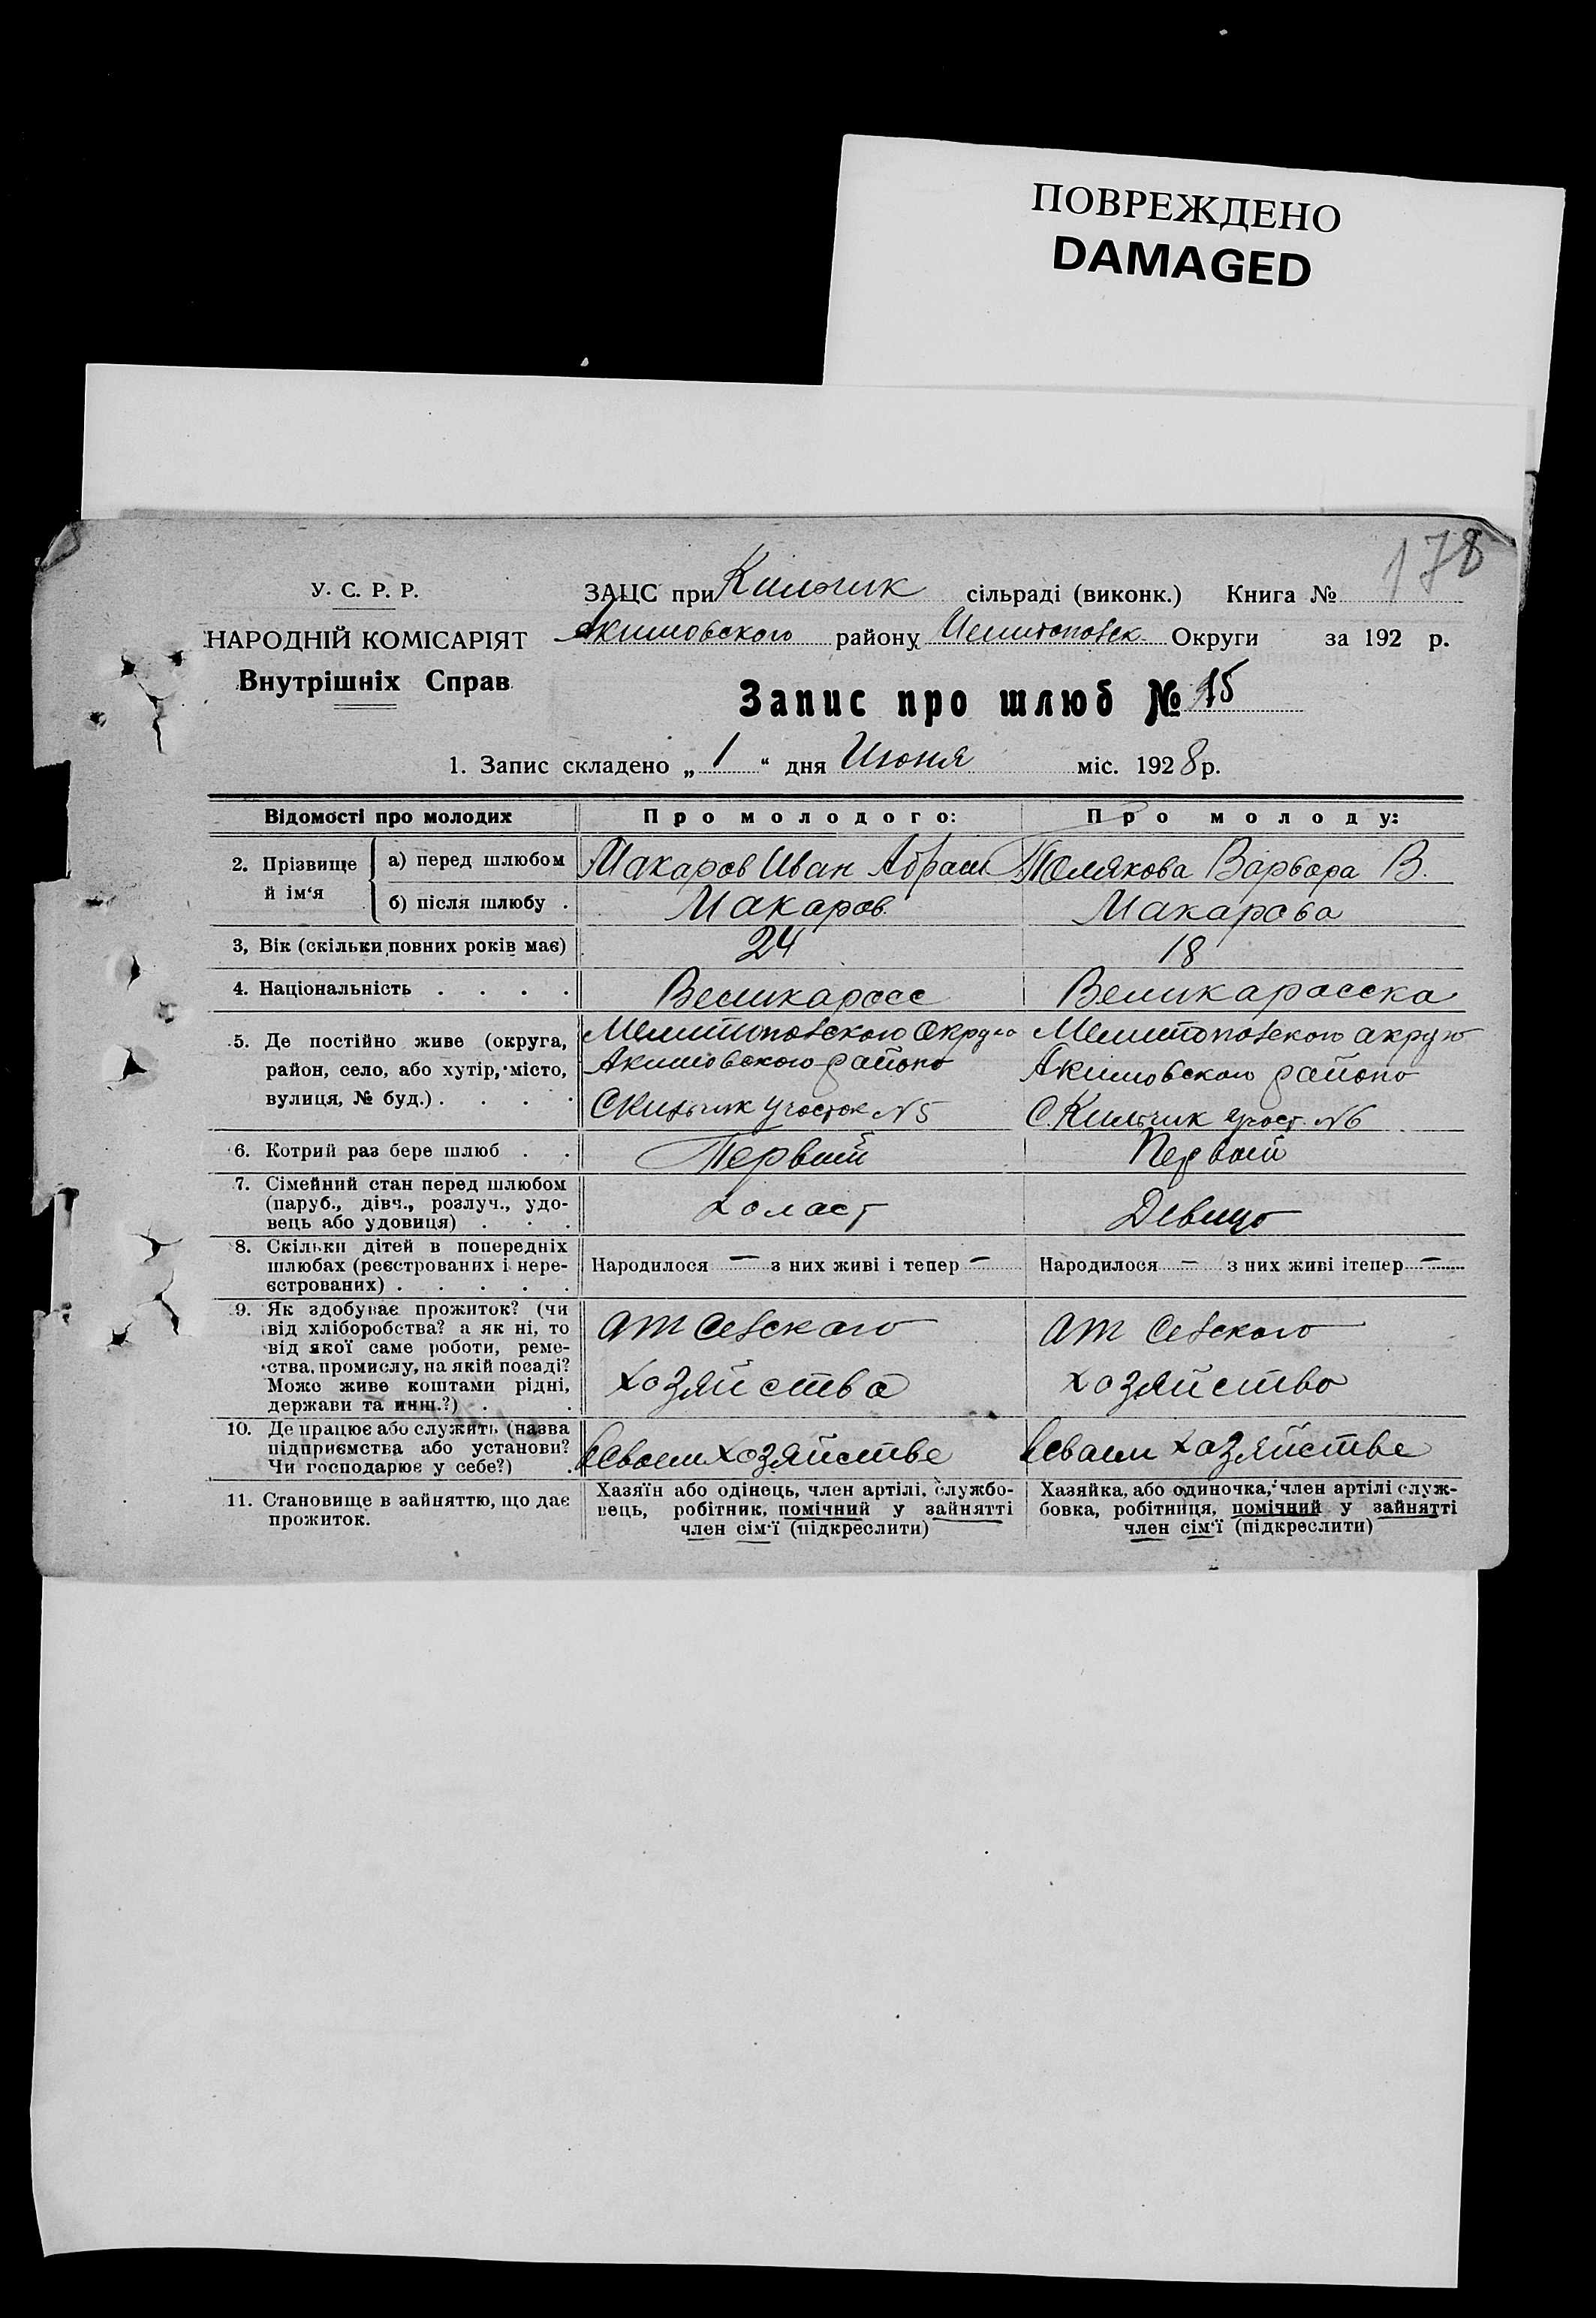 ПОВРЕЖДЕНО
DAMAGED
178
У. С. Р. Р.
ЗАЦС при Кильчик сільраді (виконк.) Книга №
НАРОДНІЙ КОМІСАРІЯТ
Акимовского району Мелитопольск Округи за 192 р.
Внутрішніх Справ
Запис про шлюб № 15
1. Запис складено „ 1 “ дня Июня міс. 1928 р.
Відомості про молодих
Про молодого:
Про молоду:
2. Прізвище й ім‘я
а) перед шлюбом
Макаров Иван Абрам
Полякова Варвара В.
б) після шлюбу .
Макаров
Макарова
3, Вік (скільки повних років має)
24
18
4. Національність . . . .
Великаросс
Великаросска
5. Де постійно живе (округа,
район, село, або хутір, місто,
вулиця, № буд.) . . . .
Мелитопольского Округа
Акимовского района
С Кильчик участок N 5
Мелитопольского акруга
Акимовского района
С. Кильчик участ. N 6
6. Котрий раз бере шлюб . .
Первый
Первый
7. Сімейний стан перед шлюбом
(паруб., дівч., розлуч., удо-
вець або удовиця) . . .
холаст
Девица
8. Скільки дітей в попередніх
шлюбах (реєстрованих і нере-
єстрованих) . . . . .
Народилося — з них живі і тепер —
Народилося — з них живі ітепер —
9. Як здобуває прожиток? (чи
від хліборобства? а як ні, то
від якої саме роботи, реме-
ства, промислу, на якій посаді?
Може живе коштами рідні,
держави та инш.?) . .
от Сельскаго
хозяйства
от Сельского
хозяйства
10. Де працює або служить (назва
підприємства або установи?
Чи господарює у себе?) .
В своем хозяйстве
В сваем хазяйстве
11. Становище в зайняттю, що дає
прожиток.
Хазяїн або одінець, член артілі, службо-
вець, робітник, помічний у зайнятті
член сім‘ї (підкреслити)
Хазяйка, або одиночка, член артілі служ-
бовка, робітниця, помічний у зайнятті
член сім‘ї (підкреслити)